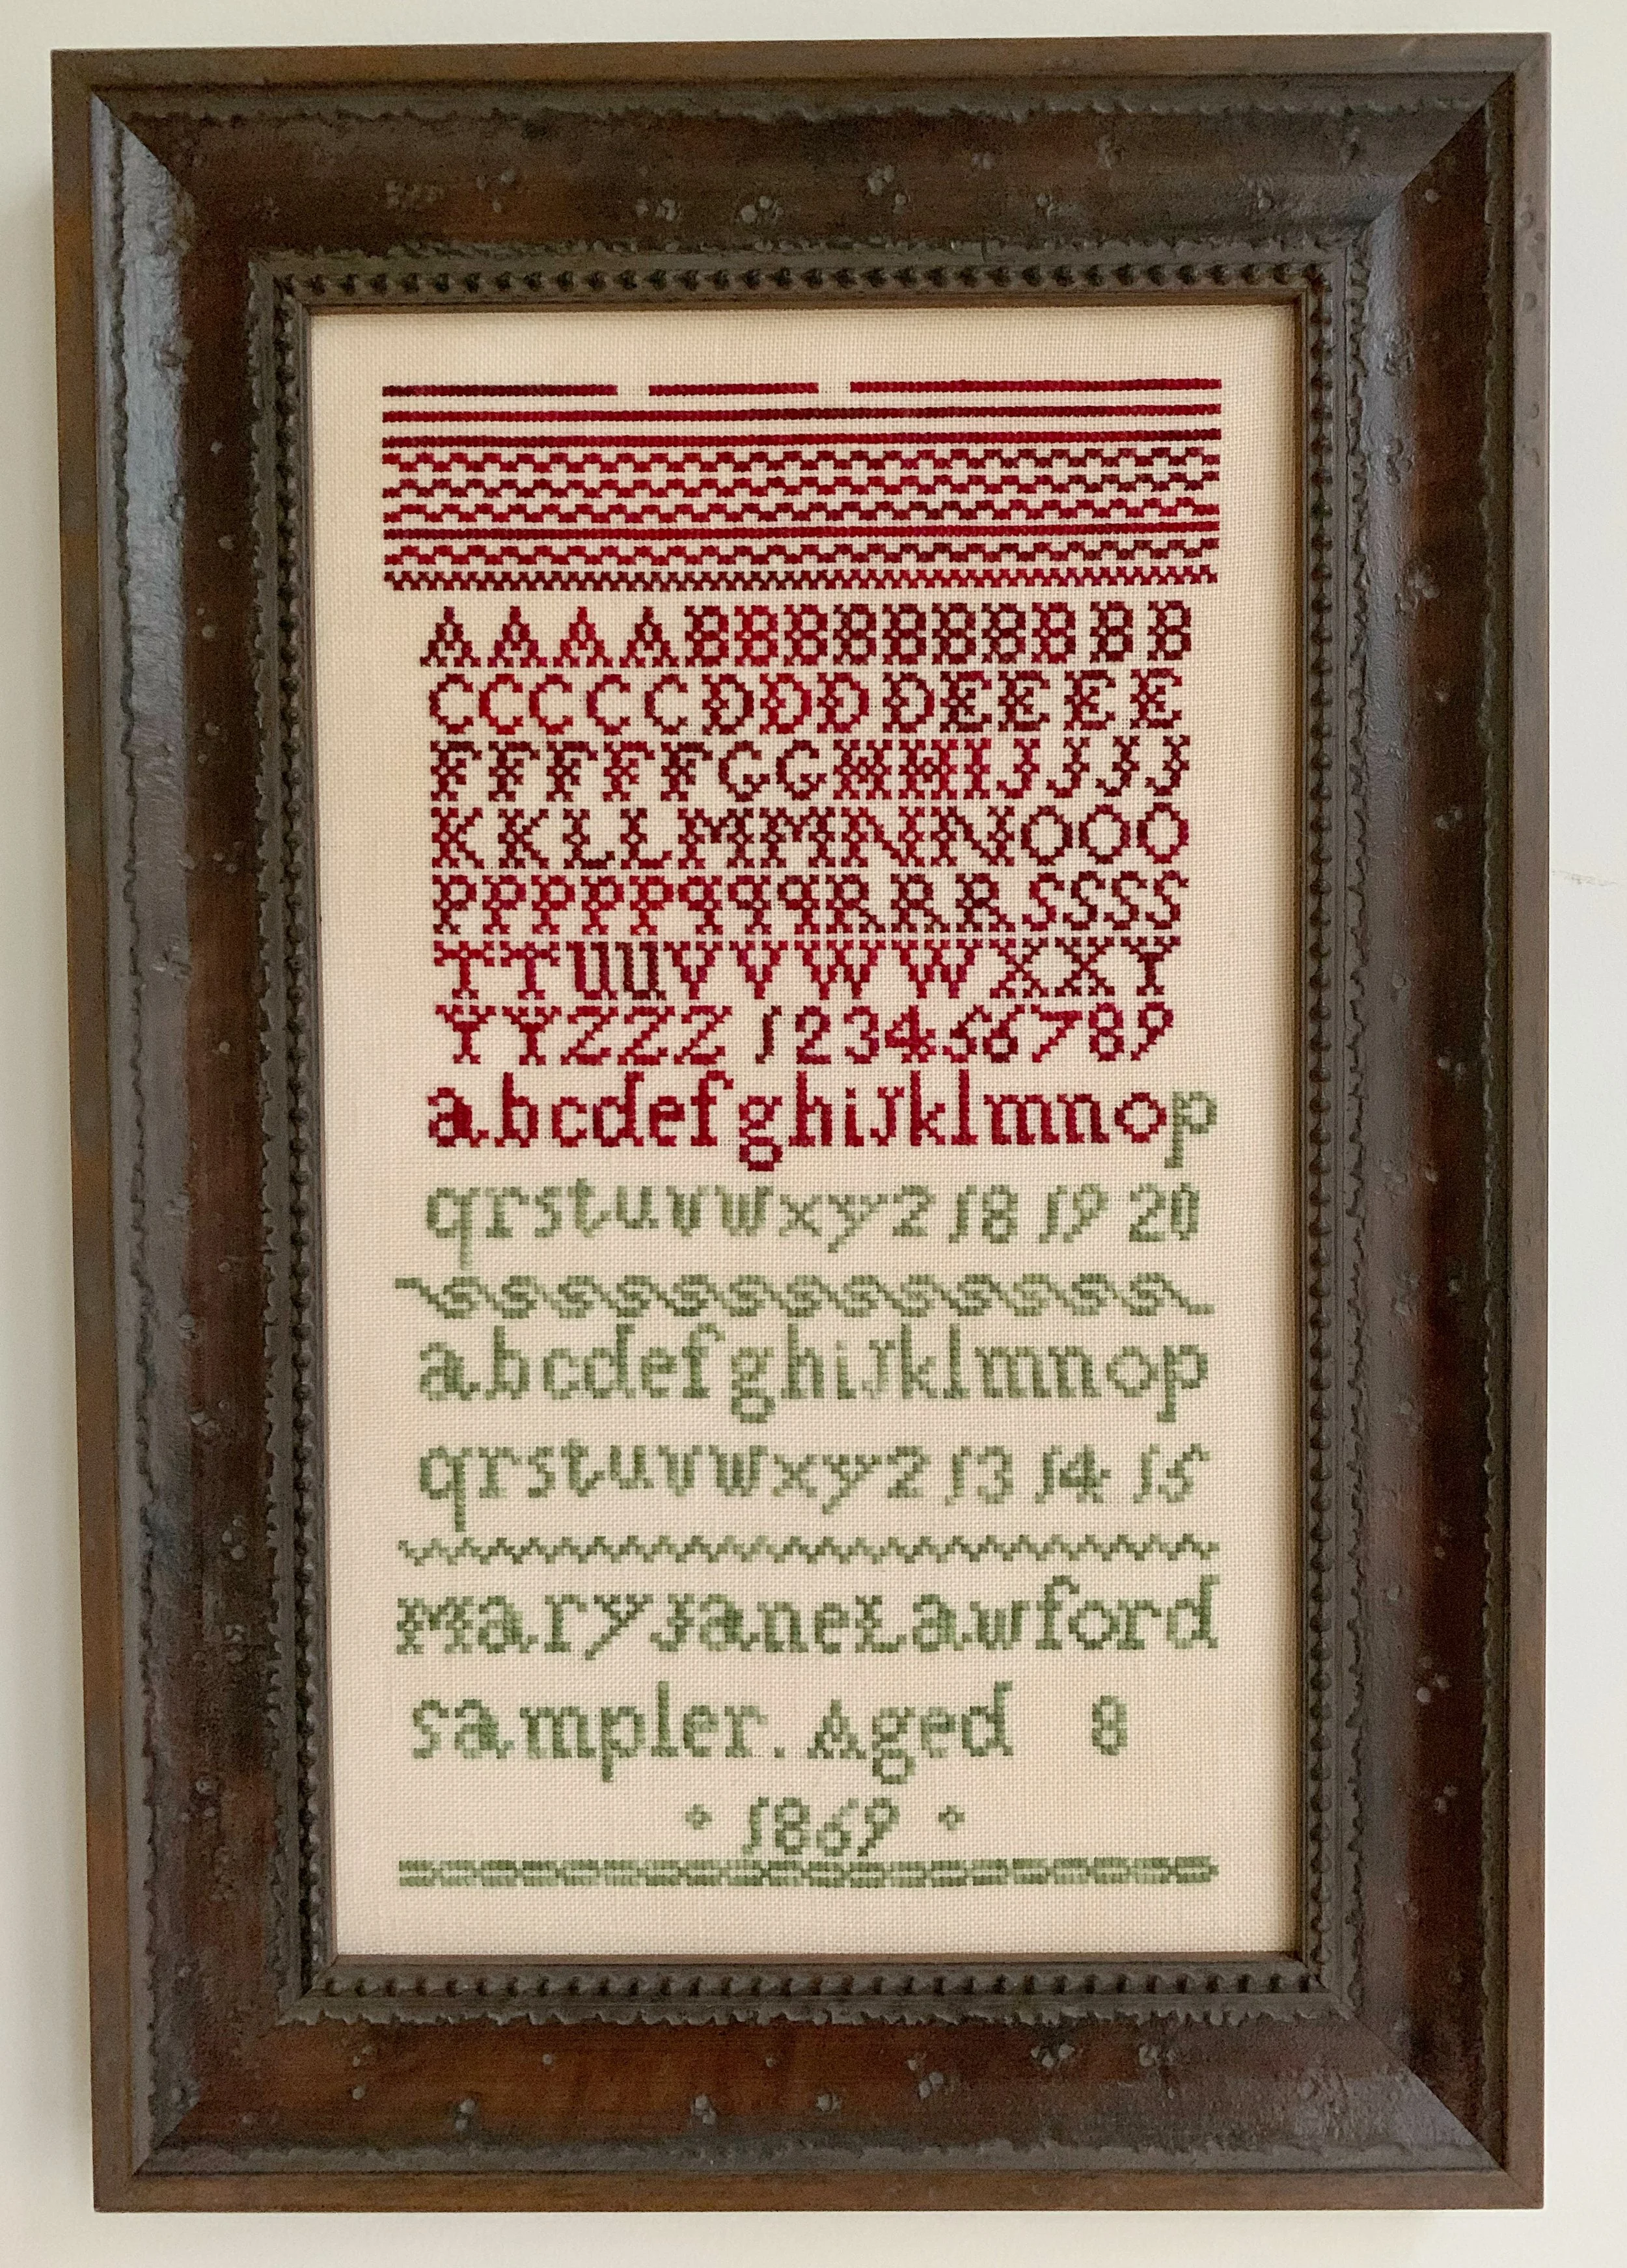 AAAABBBBBBBBBB
CCCCCDDDDEEEE
FFFFFGGHHIJJJJ
KKLLMMNNOOO
PPPPPqqqRRRSSSS
TTUUVVWWXXY
YYZZZ 123456789
abcdefghijklmnop
qrstuvwxyz 18 19 20
abcdefghijklmnop
qrstuvwxyz 13 14 15
Mary Jane Lawford
sampler. Aged 8
1869